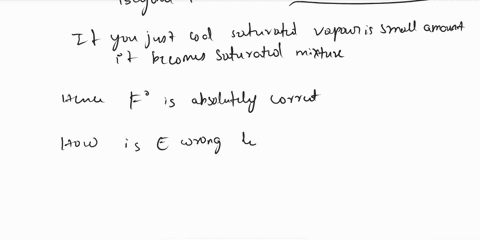 If you just cool saturated vapour is small amount
it becomes saturated mixture
Hence F° is absolutely correct
How is E wrong